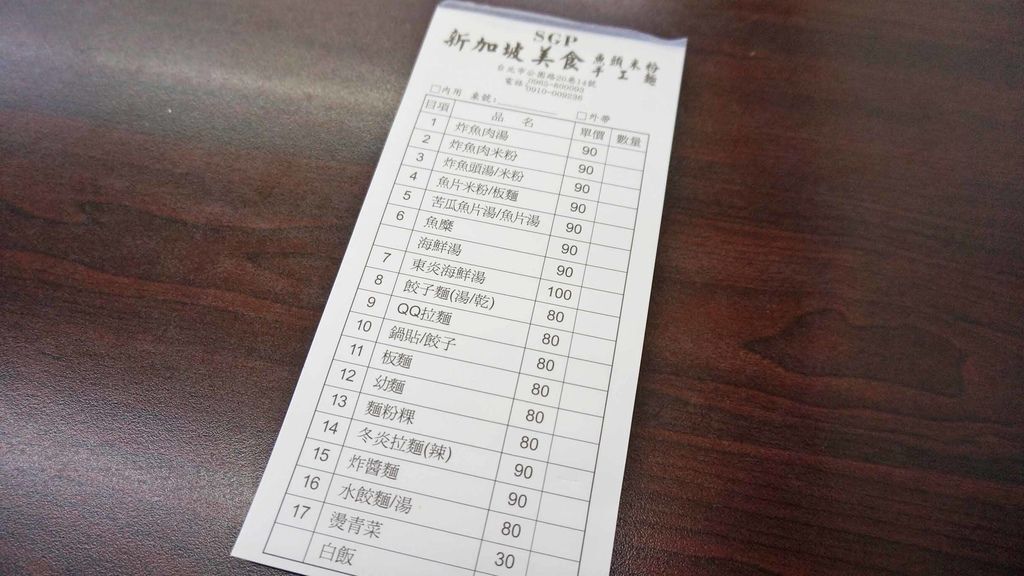 SGP
新加坡美食 魚頭米粉
手工麵
台北市公園路20巷14號
電話 0965-600093
0910-009236
□內用 桌號:________ □外帶
項目 品名 單價 數量
1 炸魚肉湯 90
2 炸魚肉米粉 90
3 炸魚頭湯/米粉 90
4 魚片米粉/板麵 90
5 苦瓜魚片湯/魚片湯 90
6 魚糜 90
海鮮湯 90
7 東炎海鮮湯 100
8 餃子麵(湯/乾) 80
9 QQ拉麵 80
10 鍋貼/餃子 80
11 板麵 80
12 幼麵 80
13 麵粉粿 80
14 冬炎拉麵(辣) 90
15 炸醬麵 90
16 水餃麵/湯 80
17 燙青菜 30
白飯